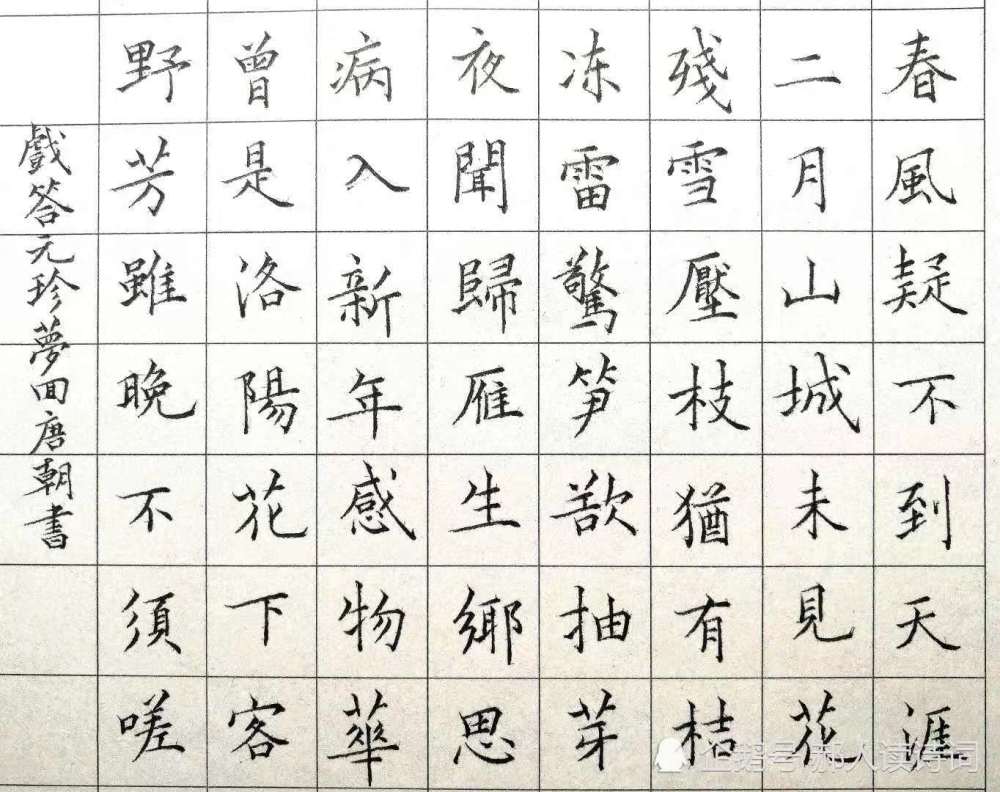 春風疑不到天涯
二月山城未見花
殘雪壓枝猶有桔
冻雷驚笋欲抽芽
夜聞歸雁生鄉思
病入新年感物華
曾是洛陽花下客
野芳雖晚不須嗟
戲答元珍夢回唐朝書
企鹅号 郝人读诗词